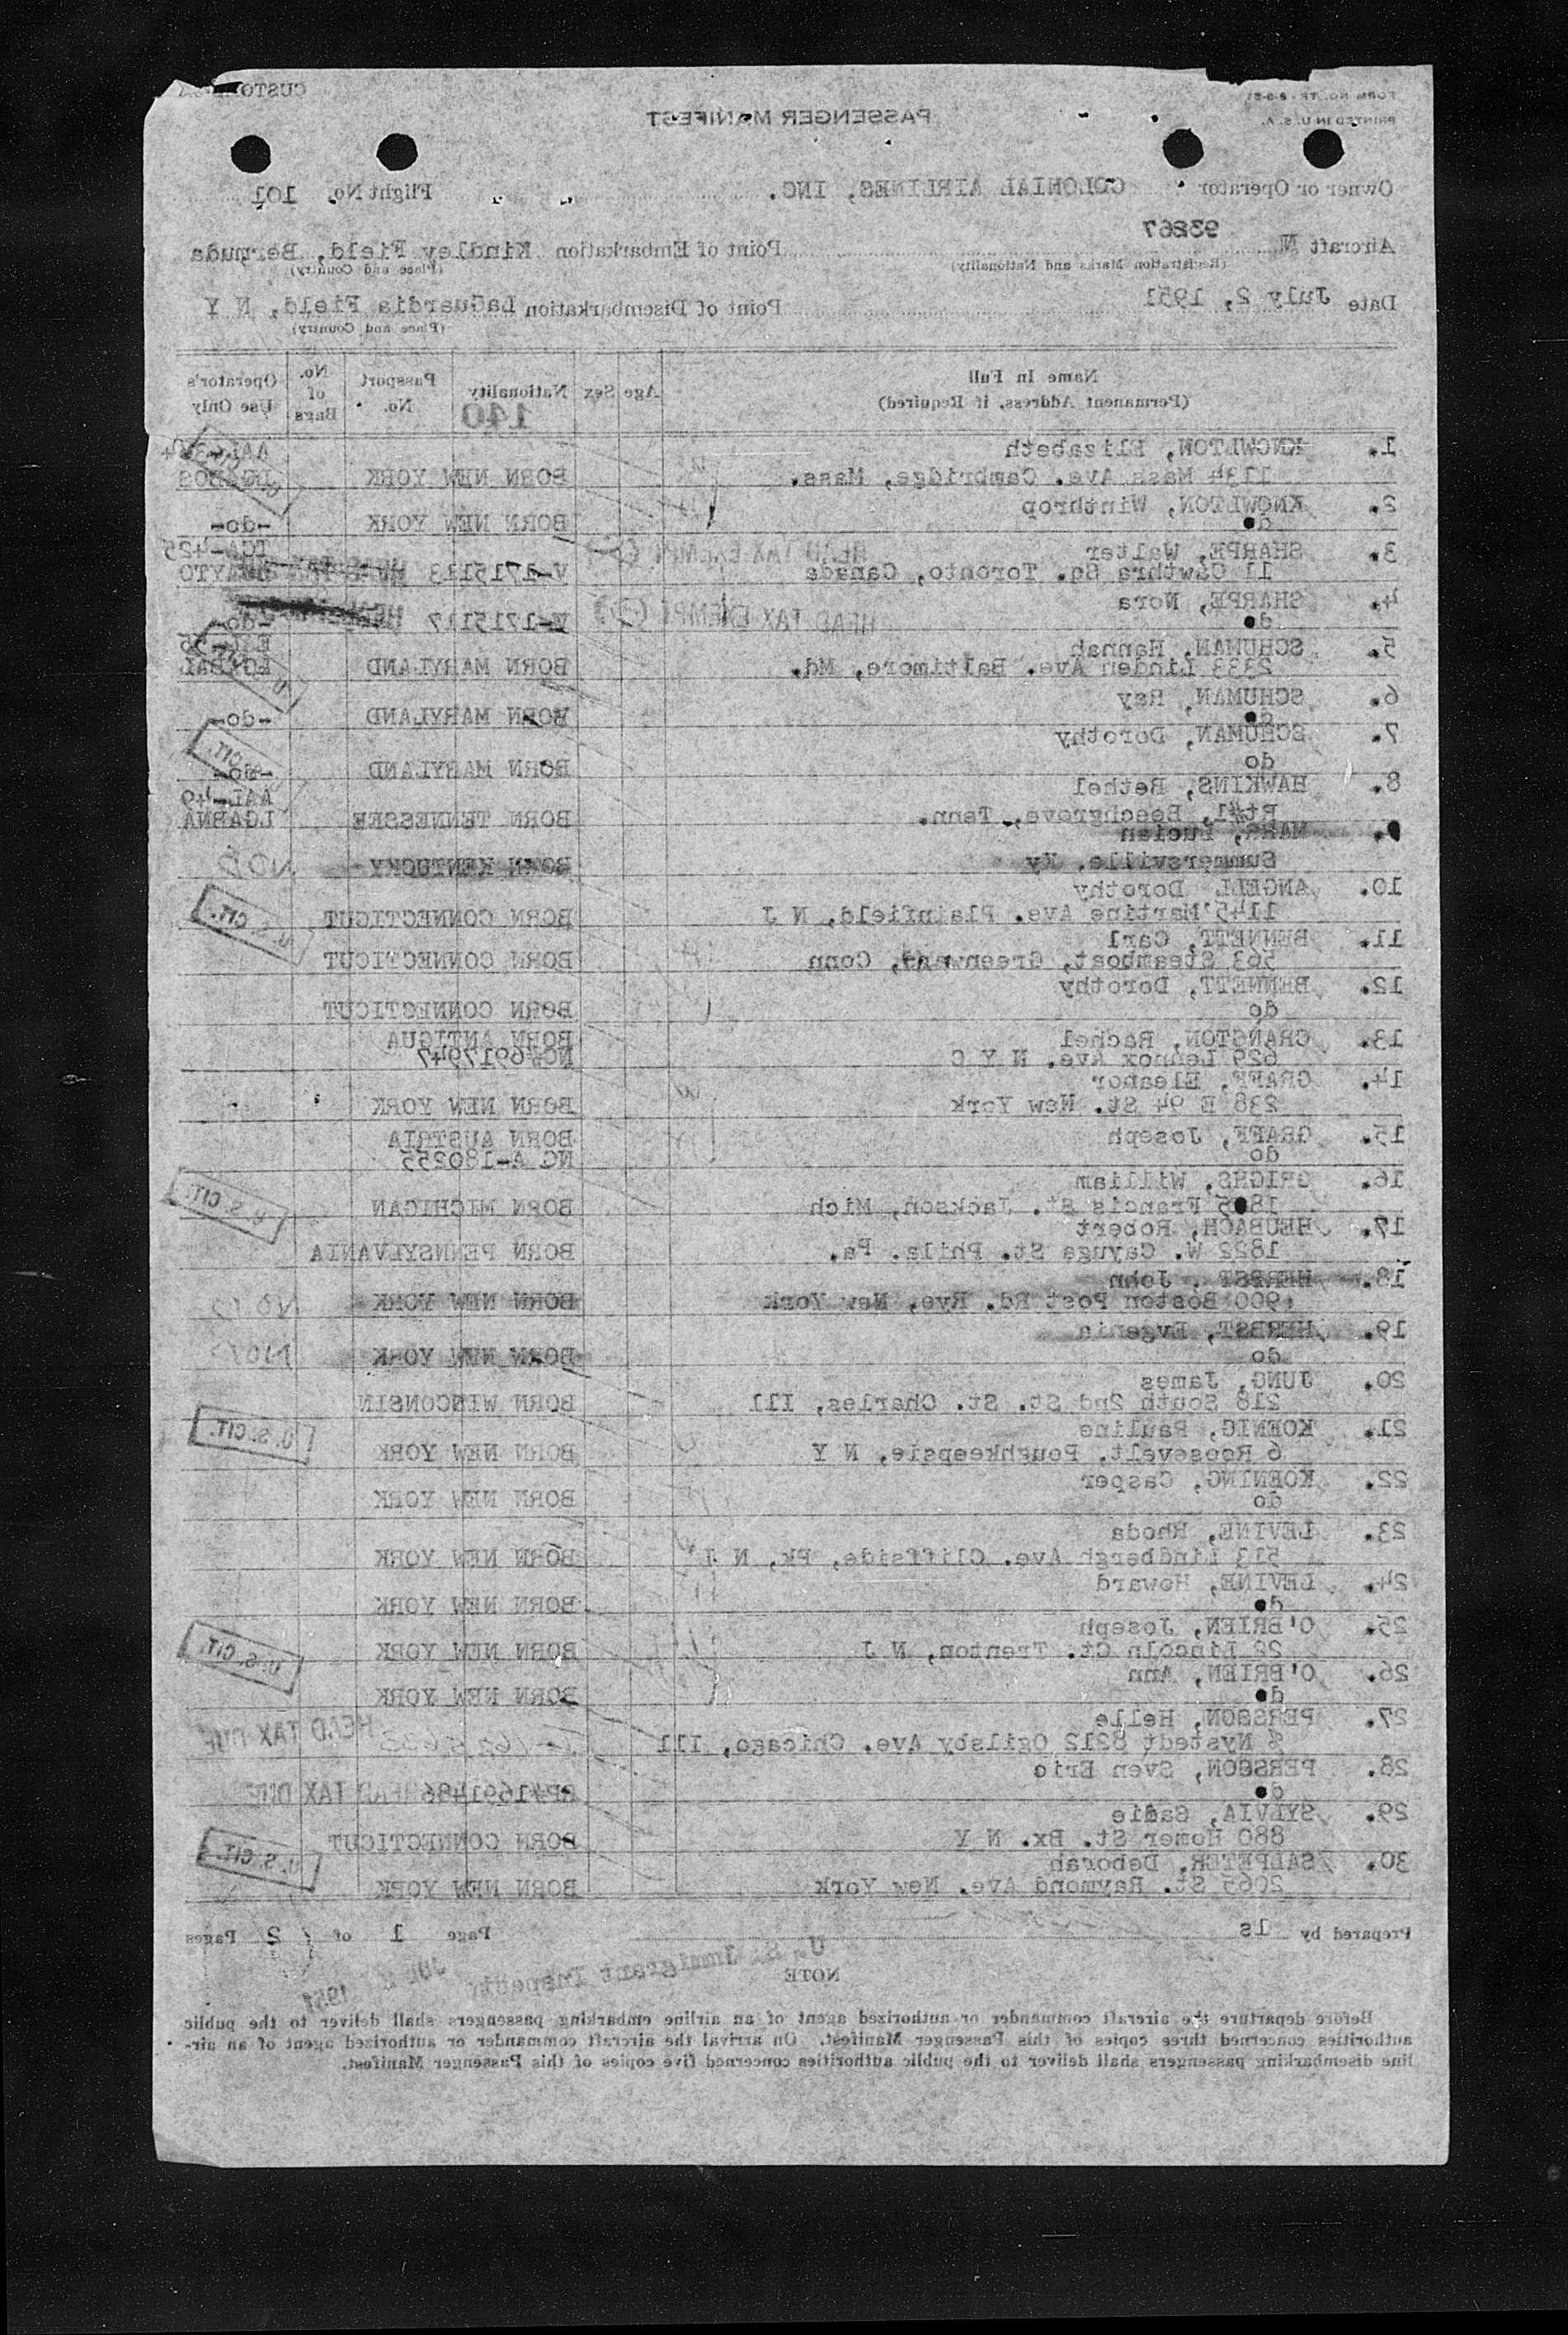 FORM NO. TF-
PRINTED IN U. S. A.
PASSENGER MANIFEST
Owner or Operator COLONIAL AIRLINES, INC. Flight No. 101
Aircraft N 93267 Point of Embarkation Kindley Field, Bermuda
(Registration Marks and Nationality) (Place and Country)
Date July 2, 1951 Point of Disembarkation LaGuardia Field, N Y
(Place and Country)
Name In Full (Permanent Address, if Required) Age Sex Nationality Passport No. No. of Bags Operator's Use Only
140
1. KNOWLTON, Elizabeth
1134 Mass Ave. Cambridge, Mass. BORN NEW YORK
2. KNOWLTON, Winthrop
do BORN NEW YORK -do-
3. SHARPE, Walter HEAD TAX EXEMPT TCA-425
11 Cawthra Sq. Toronto, Canada V-1715113
4. SHARPE, Nora HEAD TAX EXEMPT
do V-1715117 -do-
5. SCHUMAN, Hannah
2333 Linden Ave. Baltimore, Md. BORN MARYLAND LGABAL
6. SCHUMAN, Ray
do BORN MARYLAND -do-
7. SCHUMAN, Dorothy
do BORN MARYLAND -do-
8. HAWKINS, Bethel AAL-49
Rt#1, Beechgrove, Tenn. BORN TENNESSEE LGABNA
MARR, Lucien
Summersville, Ky BORN KENTUCKY NOB
10. ANGELL Dorothy
1145 Martine Ave. Plainfield, N J BORN CONNECTICUT U. S. CIT.
11. BENNETT, Carl
563 Steamboat, Greenwend, Conn BORN CONNECTICUT
12. BENNETT, Dorothy
do BORN CONNECTICUT
13. CRANGTON, Rachel BORN ANTIGUA
629 Lennox Ave. N Y C NC#6917947
14. GRAFF, Eleanor
238 E 94 St. New York BORN NEW YORK
15. GRAFF, Joseph BORN AUSTRIA
do NC A-180255
16. GRIGHS, William
Francis St. Jackson, Mich BORN MICHIGAN U. S. CIT.
17. HEUBACH, Robert
1822 W. Cayuga St. Phila. Pa. BORN PENNSYLVANIA
18. HERBST, John
900 Boston Post Rd. Rye, New York BORN NEW YORK
19. HERBST, Evgenia
do BORN NEW YORK
20. JUNG, James
218 South 2nd St. St. Charles, Ill BORN WISCONSIN
21. KOENIG, Pauline U. S. CIT.
6 Roosevelt, Poughkeepsie, N Y BORN NEW YORK
22. KOENING, Casper
do BORN NEW YORK
23. LEVINE, Rhoda
513 Lindbergh Ave. Cliffside, Pk, N J BORN NEW YORK
24. LEVINE, Howard
do BORN NEW YORK
25. O'BRIEN, Joseph
29 Lincoln Ct. Trenton, N J BORN NEW YORK U. S. CIT.
26. O'BRIEN, Ann
do BORN NEW YORK
27. PERSSON, Helle HEAD TAX DUE
% Nystedt 8212 Ogilsby Ave. Chicago, Ill
28. PERSSON, Sven Eric
do RP#1691486 HEAD TAX DUE
29. SYLVIA, Sadie
880 Homer St. Bx. N Y BORN CONNECTICUT U. S. CIT.
30. SALPETER, Deborah
2065 St. Raymond Ave. New York BORN NEW YORK
Prepared by ls Page 1 of 2 Pages
U. S. Immigrant Inspector
1951
NOTE
Before departure the aircraft commander or authorized agent of an airline embarking passengers shall deliver to the public
authorities concerned three copies of this Passenger Manifest. On arrival the aircraft commander or authorized agent of an air-
line disembarking passengers shall deliver to the public authorities concerned five copies of this Passenger Manifest.